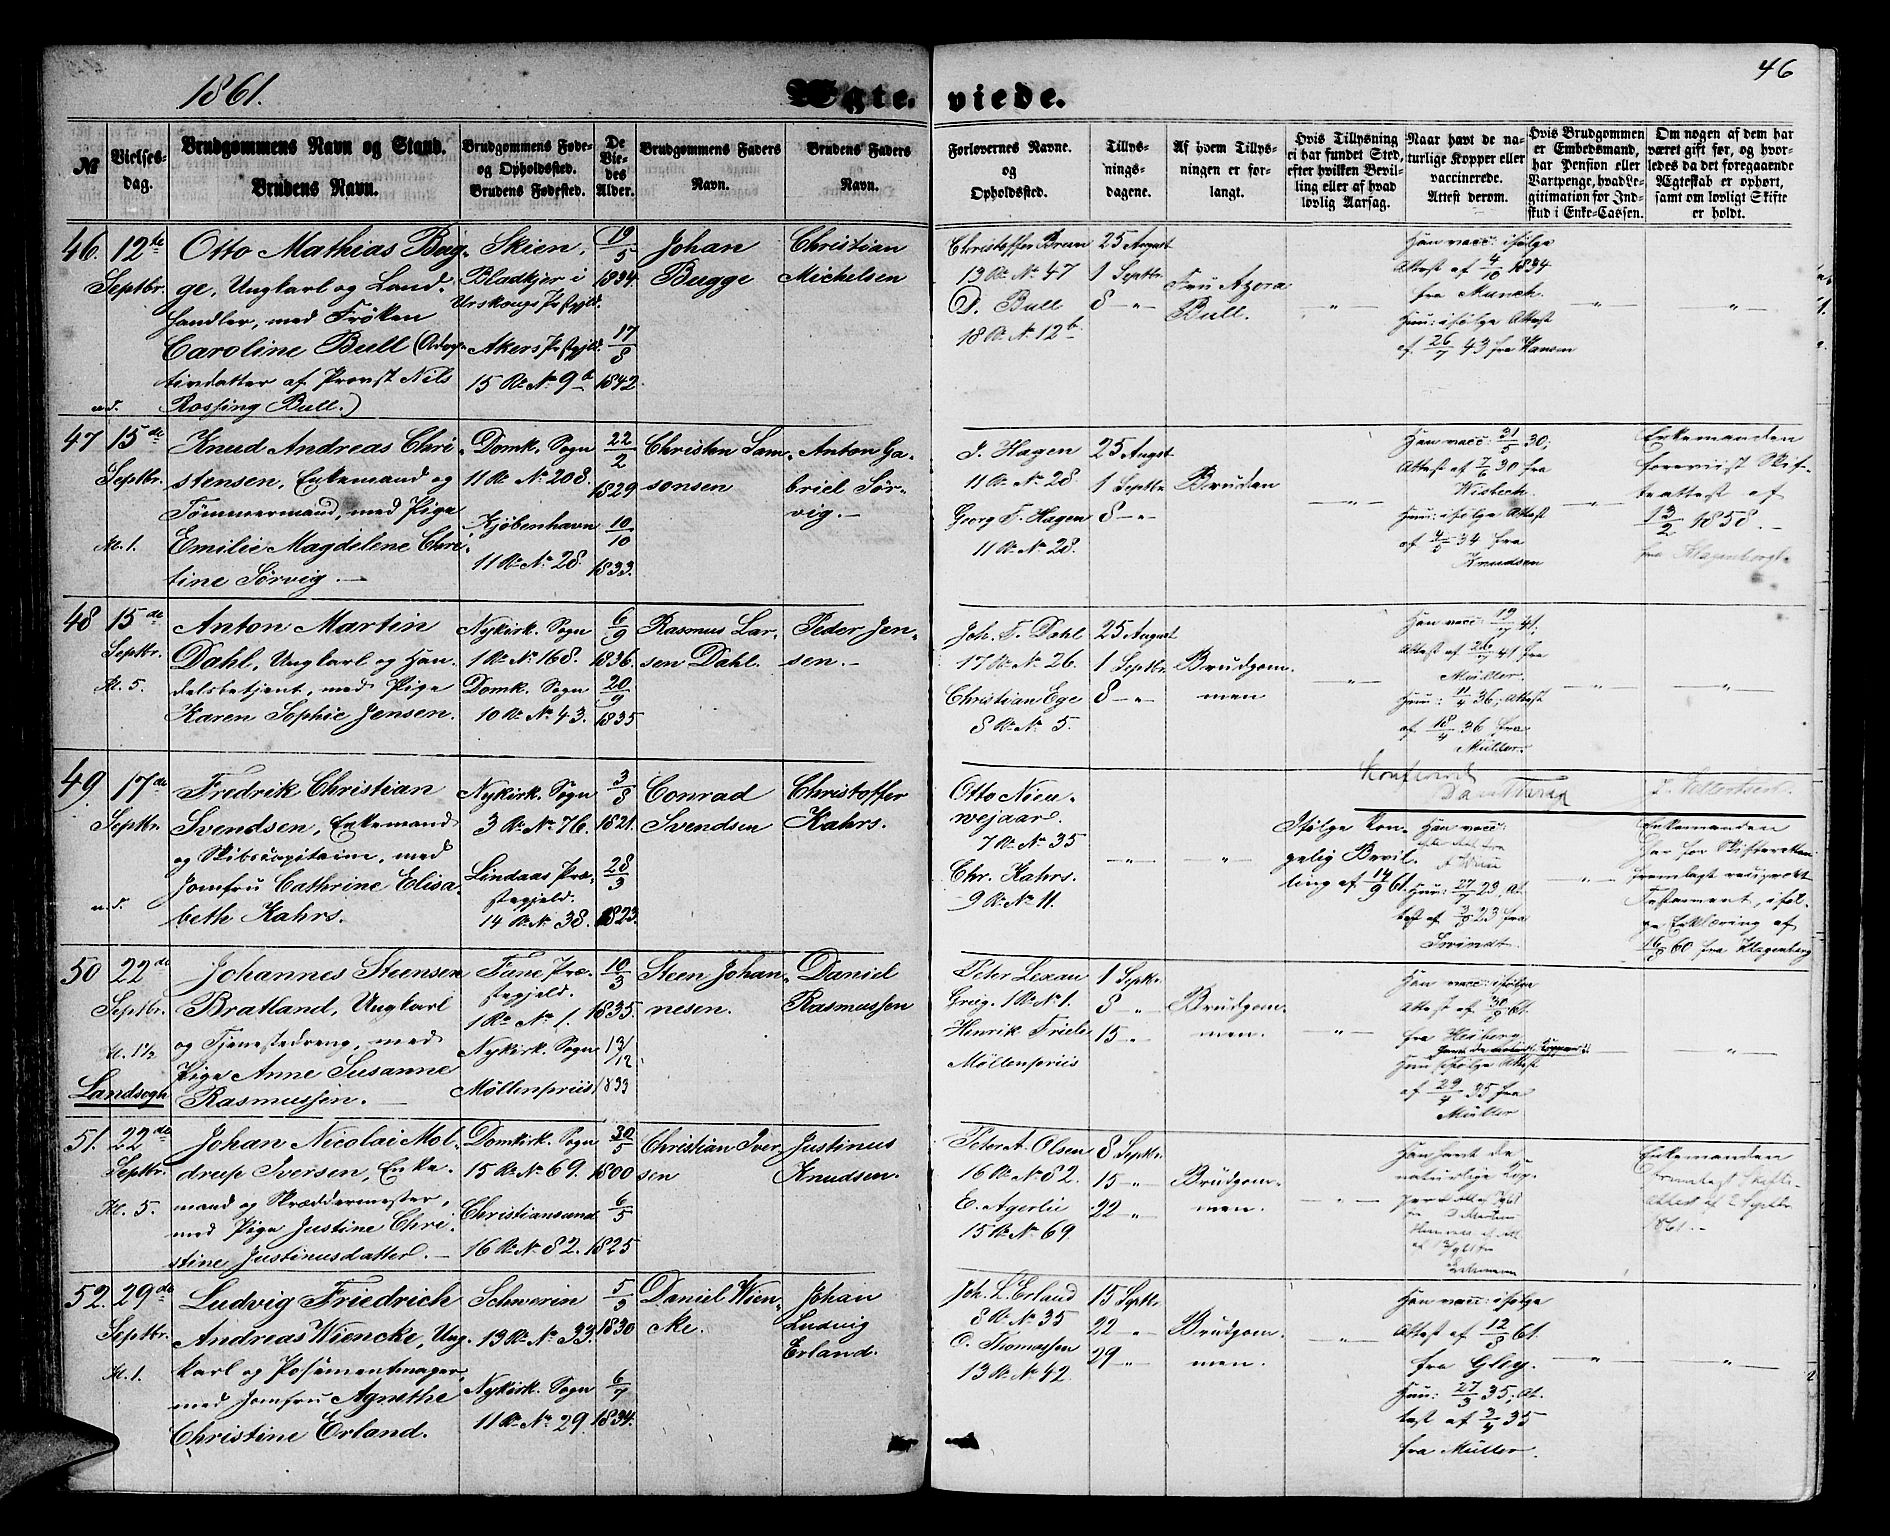 1861.
Ægte-
viede.
46
№
Vielses-
dag.
Brudgommens Navn og Stand.
Brudens Navn.
Brudgommens Føde-
og Opholdssted.
Brudens Fødested.
De
Vie-
des
Alder.
Brudgommens Faders
Navn.
Brudens Faders
Navn.
Forlovernes Navne.
og
Opholdssted.
Tillys-
nings-
dagene.
Af hvem Tillys-
ningen er for-
langt.
Hvis Tillysning
ei har fundet Sted,
efter hvilken Bevil-
ling eller af hvad
lovlig Aarsag.
Naar havt de na-
turlige Kopper eller
vaccinerede.
Attest derom.
Hvis Brudgommen
er Embedsmand,
har Pension eller
Vartpenge, hvad Le-
gitimation for Ind-
skud i Enke-Cassen.
Om nogen af dem har
været gift før, og hvor-
ledes da det foregaaende
Ægteskab er ophørt,
samt om lovligt Skifte
er holdt.
46. 12te
Septbr.
Otto Mathias Bug-
ge, Ungkarl og Land-
handler, med Frøken
Caroline Bull (Adop-
tivdatter af Provst Nils
Rossing Bull.)
Skien.
Bladkjer i
Urskougs Præstgjld.
Akers Præstgjld.
15 R. No 9 b
19/5
1834.
17/8
1842.
Johan
Bugge
Christian
Michelsen
Christoffer Bruun
13 R. No 47
D. Bull
18 R. No 12 b.
25 August
1 Septbr.
8 — " —
Fru Azora
Bull.
— " —
Han vacc: ifølge
Attest af 4/10 1834
fra Munch.
Hun: ifølge Attest
af 26/7 43 fra Hansen
— " —
"
47 15de
Septbr.
Kl. 1.
Knud Andreas Chri-
stensen, Enkemand og
Tømmermand, med Pige
Emilie Magdelene Chri-
tine Sørvig. —
Domk. Sogn
11 R. No 208.
Kjøbenhavn
11 R. No 28.
22/2
1829
10/10
1833.
Christen Sam-
sonsen
Anton Ga-
briel Sør-
vig. —
J. Hagen
11 R. No 28.
Georg F. Hagen
11 R. No 28.
25 Augst
1 Septbr
8 — " —
Bruden
— " —
Han vacc: 31/5 30;
Attest af 7/6 30 fra
Wisbech.
Hun: ifølge Attest
af 4/5 34 fra
Knudsen
— " —
Enkemanden
foreviist Skif-
teattest af
13/2 1858. —
48 15de
Septbr.
Kl. 5.
Anton Martin
Dahl, Ungkarl og Han-
delsbetjent, med Pige
Karen Sophie Jensen.
Nykirk. Sogn
1 R. No 168.
Domk. Sogn
10 R. No 43.
6/9
1836.
20/9
1835
Rasmus Lar-
sen Dahl.
Peder Jen-
sen. —
Joh. F. Dahl
17 R. No 26.
Christian Ege
8 R. No 5.
25 August
1 Septbr.
8 — " —
Brudgom-
men
— " —
Han vacc: 19/7 41;
Attest af 26/7 41 fra
Müller.
Hun: 11/4 36; Attest
af 18/4 36 fra
Müller.
— " —
— " —
49. 17de
Septbr.
Fredrik Christian
Svendsen, Enkemand
og Skibscapitain, med
Jomfru Cathrine Elisa-
beth Kahrs.
Nykirk. Sogn
3 R. No 76.
Lindaas Præ-
stegjeld.
14 R. No 38.
3/8
1821.
28/3
1823.
Conrad
Svendsen
Christoffer
Kahrs.
Otto Nieu-
wejaar.
7 R. No 35
Chr. Kahrs.
9 R. No 11.
— " —
"
Ifølge Kon-
gelig Bevil-
ling af 14/9 61.
Han vacc:
Hun: 27/7 23, At-
test af 3/8 23 fra
Svindt.
— " —
Enkemanden
har for Skifteretten
fremlagt reciprokt
Testament, iføl-
ge Erklæring af
16/8 60 fra Klagenberg
50 22de
Septbr.
Kl. 1½
Landsogn
Johannes Steensen
Bratland, Ungkarl
og Tjenestedreng, med
Pige Anne Susanne
Rasmussen. —
Fane Præ-
stegjeld.
1 R. No 1.
Nykirk. Sogn
Møllenpriis
10/3
1835.
13/12
1833
Steen Johan-
nesen.
Daniel
Rasmussen
Peter Lexau
Greig. 1 R. No 1.
Henrik Friele
Møllenpriis
1 Septbr.
8 — " —
15 — " —
Brudgom-
men.
— " —
Han vacc: ifølge
Attest af 30/8 61.
fra Heiberg
Hun ifølge Attest
af 29/4 35 fra
Müller
— " —
51. 22de
Septbr.
Kl. 5.
Johan Nicolai Mol-
drup Iversen, Enke-
mand og Skræddermester,
med Pige Justine Chri-
stine Justinusdatter. —
Domkirk. Sogn
15 R. No 69.
Christiansund.
16 R. No 82.
30/5
1800
6/5
1825
Christian Iver-
sen
Justinus
Knudsen.
Peter A. Olsen
16 R. No 82.
E. Agerlie
15 R. No 69.
8 Septbr.
15 — " —
22 — " —
Brudgom-
men.
— " —
Han havt de
naturlige Kop-
per
Enkemanden
fremlagt Skifte-
attest af 2 Septbr.
1861. —
52. 29de
Septbr.
Kl. 1.
Ludvig Friedrich
Andreas Wiencke, Ung-
karl og Posementmager,
med Jomfru Agnethe
Christine Erland.
Schwerin
13 R. No 33.
Nykirk. Sogn
11 R. No 29.
5/3
1830
6/7
1834.
Daniel Wien-
cke.
Johan
Ludvig
Erland.
Joh. L. Erland
8 R. No 35
C. Thomassen
13 R. No 42.
15 Septbr.
22 — " —
29 — " —
Brudgom-
men.
— " —
Han vacc: ifølge
Attest af 12/8 61.
fra Gley.
Hun: 27/3 35, At-
test af 3/4 35
fra Müller.
— " —
"